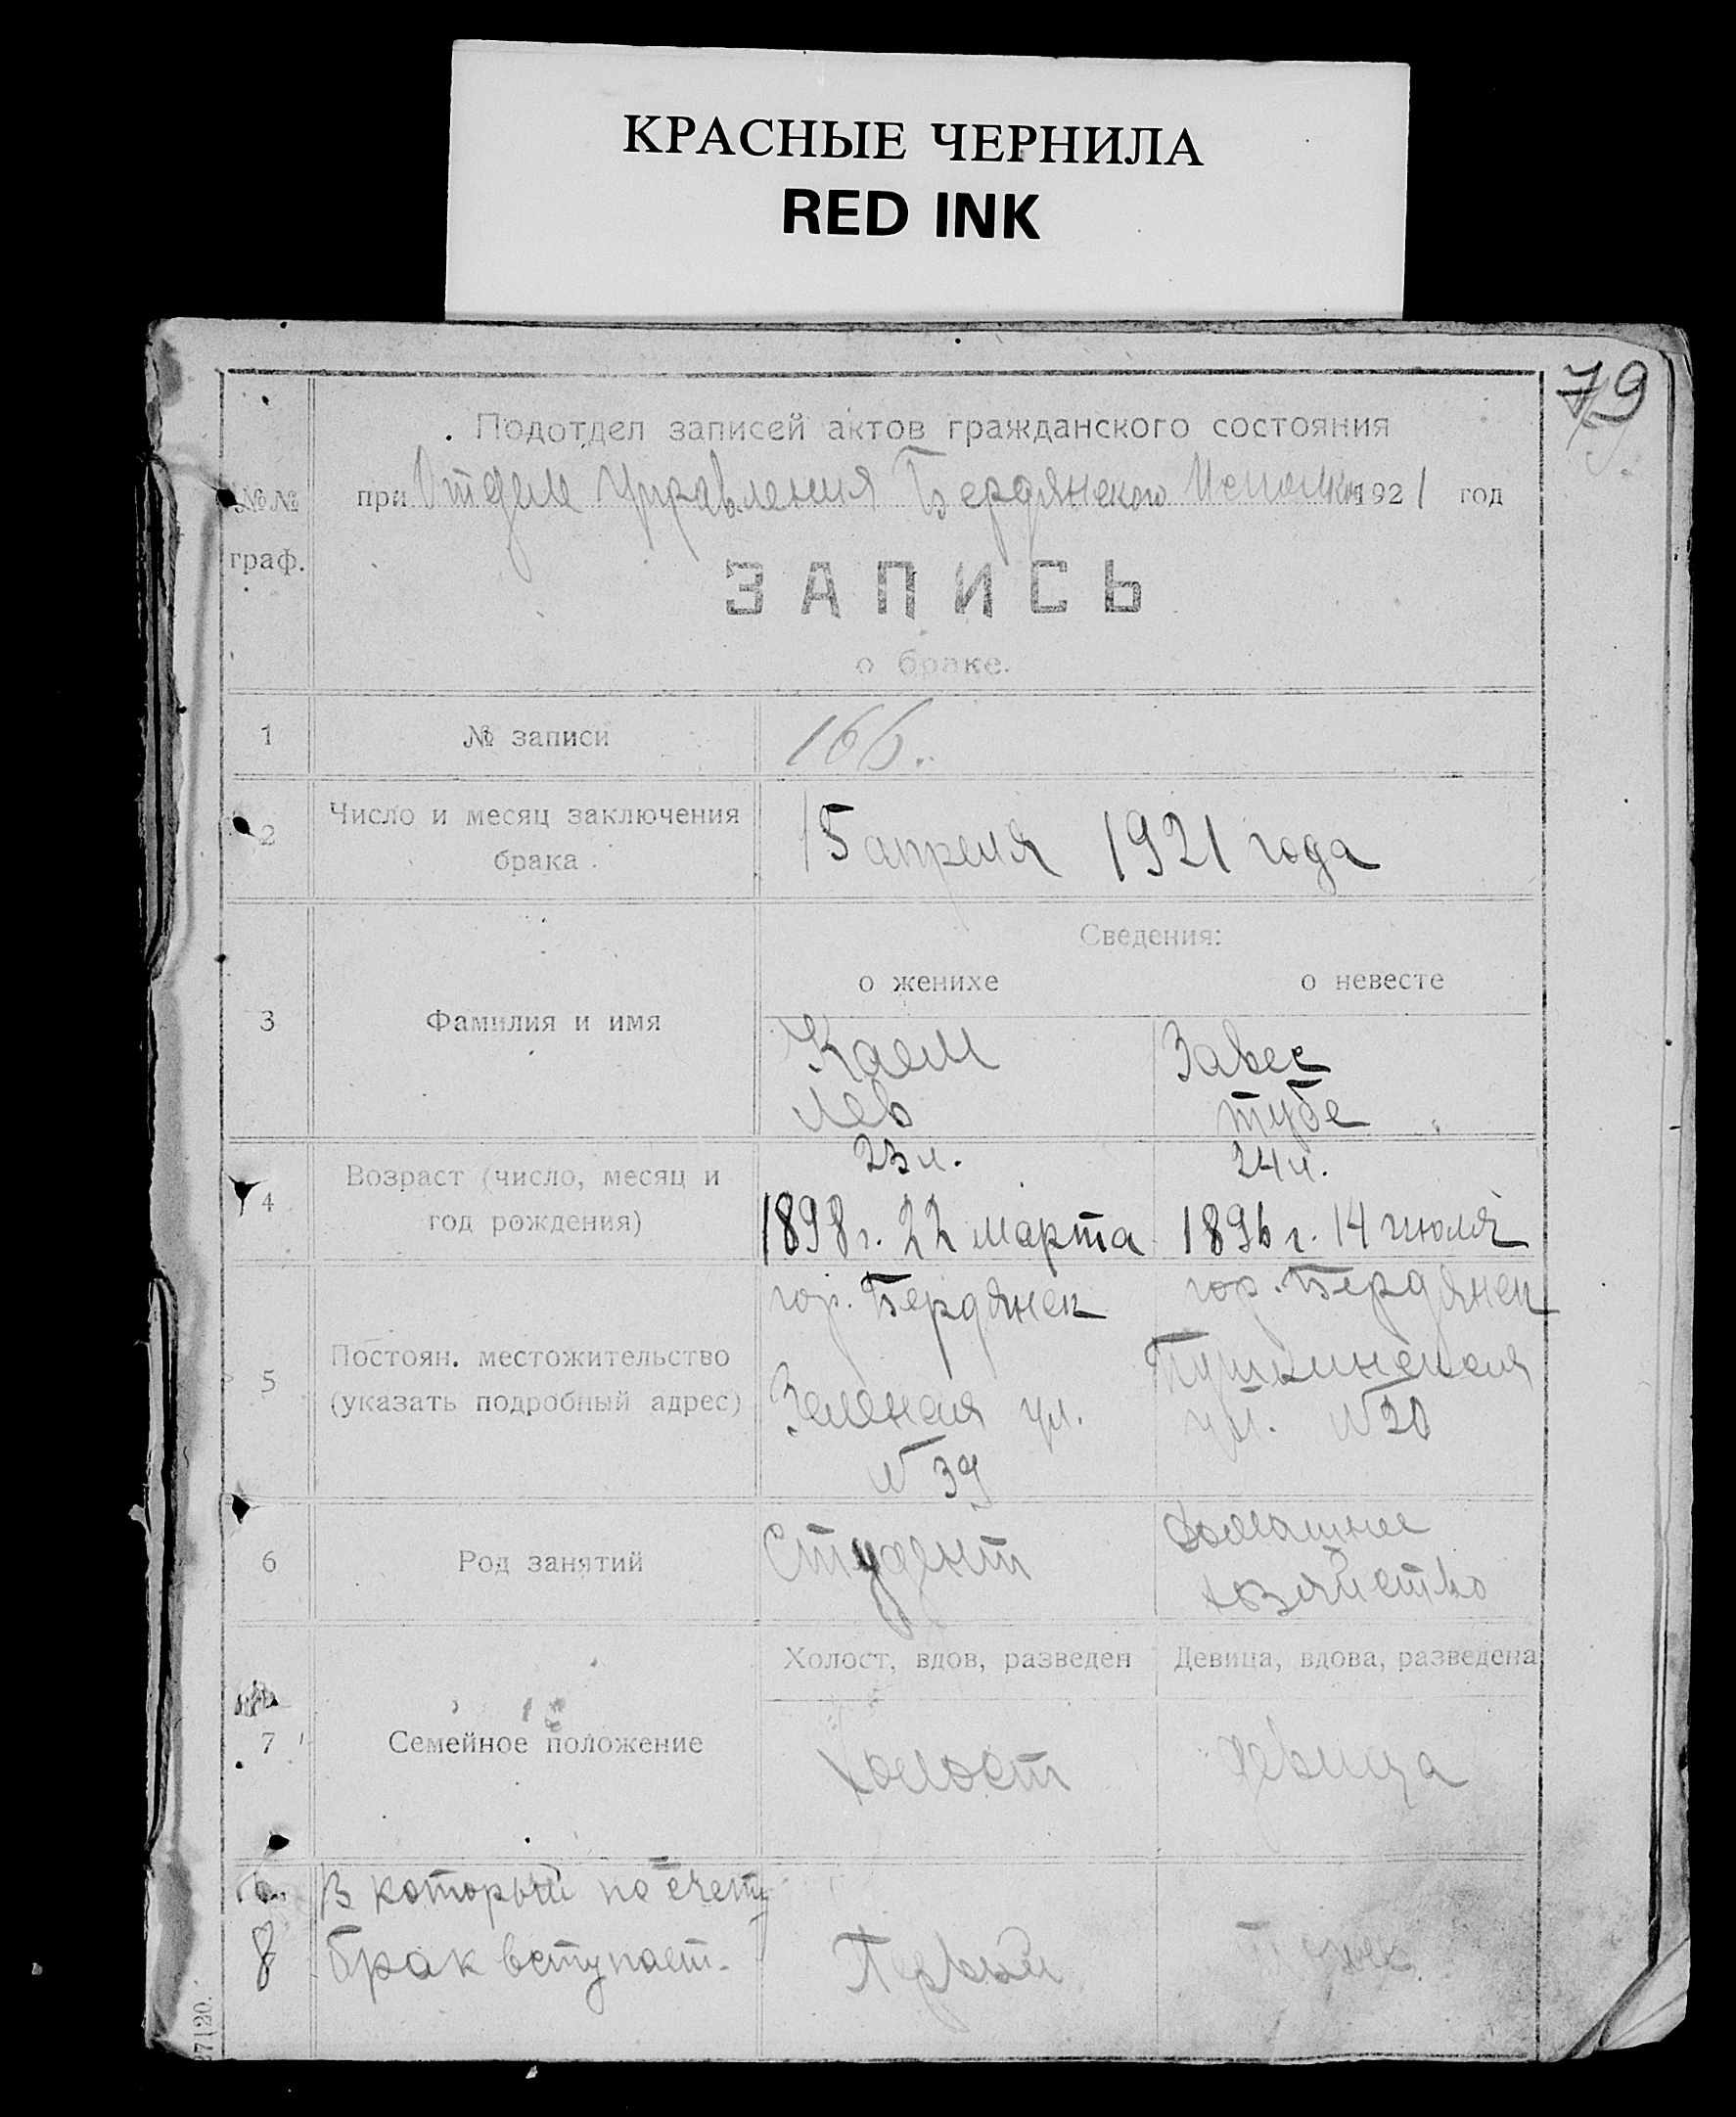 КРАСНЫЕ ЧЕРНИЛА
RED INK
79
Подотдел записей актов гражданского состояния
№№ при Отделе Управления Бердянского Исполком 1921 год
граф.
ЗАПИСЬ
о браке.
1 № записи 166.
2 Число и месяц заключения брака 15 апреля 1921 года
Сведения:
о женихе о невесте
3 Фамилия и имя
Каем Завес
Лев Тубе
23 л. 24 л.
4 Возраст (число, месяц и год рождения)
1898 г. 22 марта 1896 г. 14 июля
гор. Бердянск гор. Бердянск
5 Постоян. местожительство (указать подробный адрес)
Зеленая ул. Пушкинская
№ 39 ул. № 20
6 Род занятий
Студент домашнее
хозяйство
Холост, вдов, разведен Девица, вдова, разведена
7 Семейное положение
холост девица
В который по счету
8 брак вступает. Первый